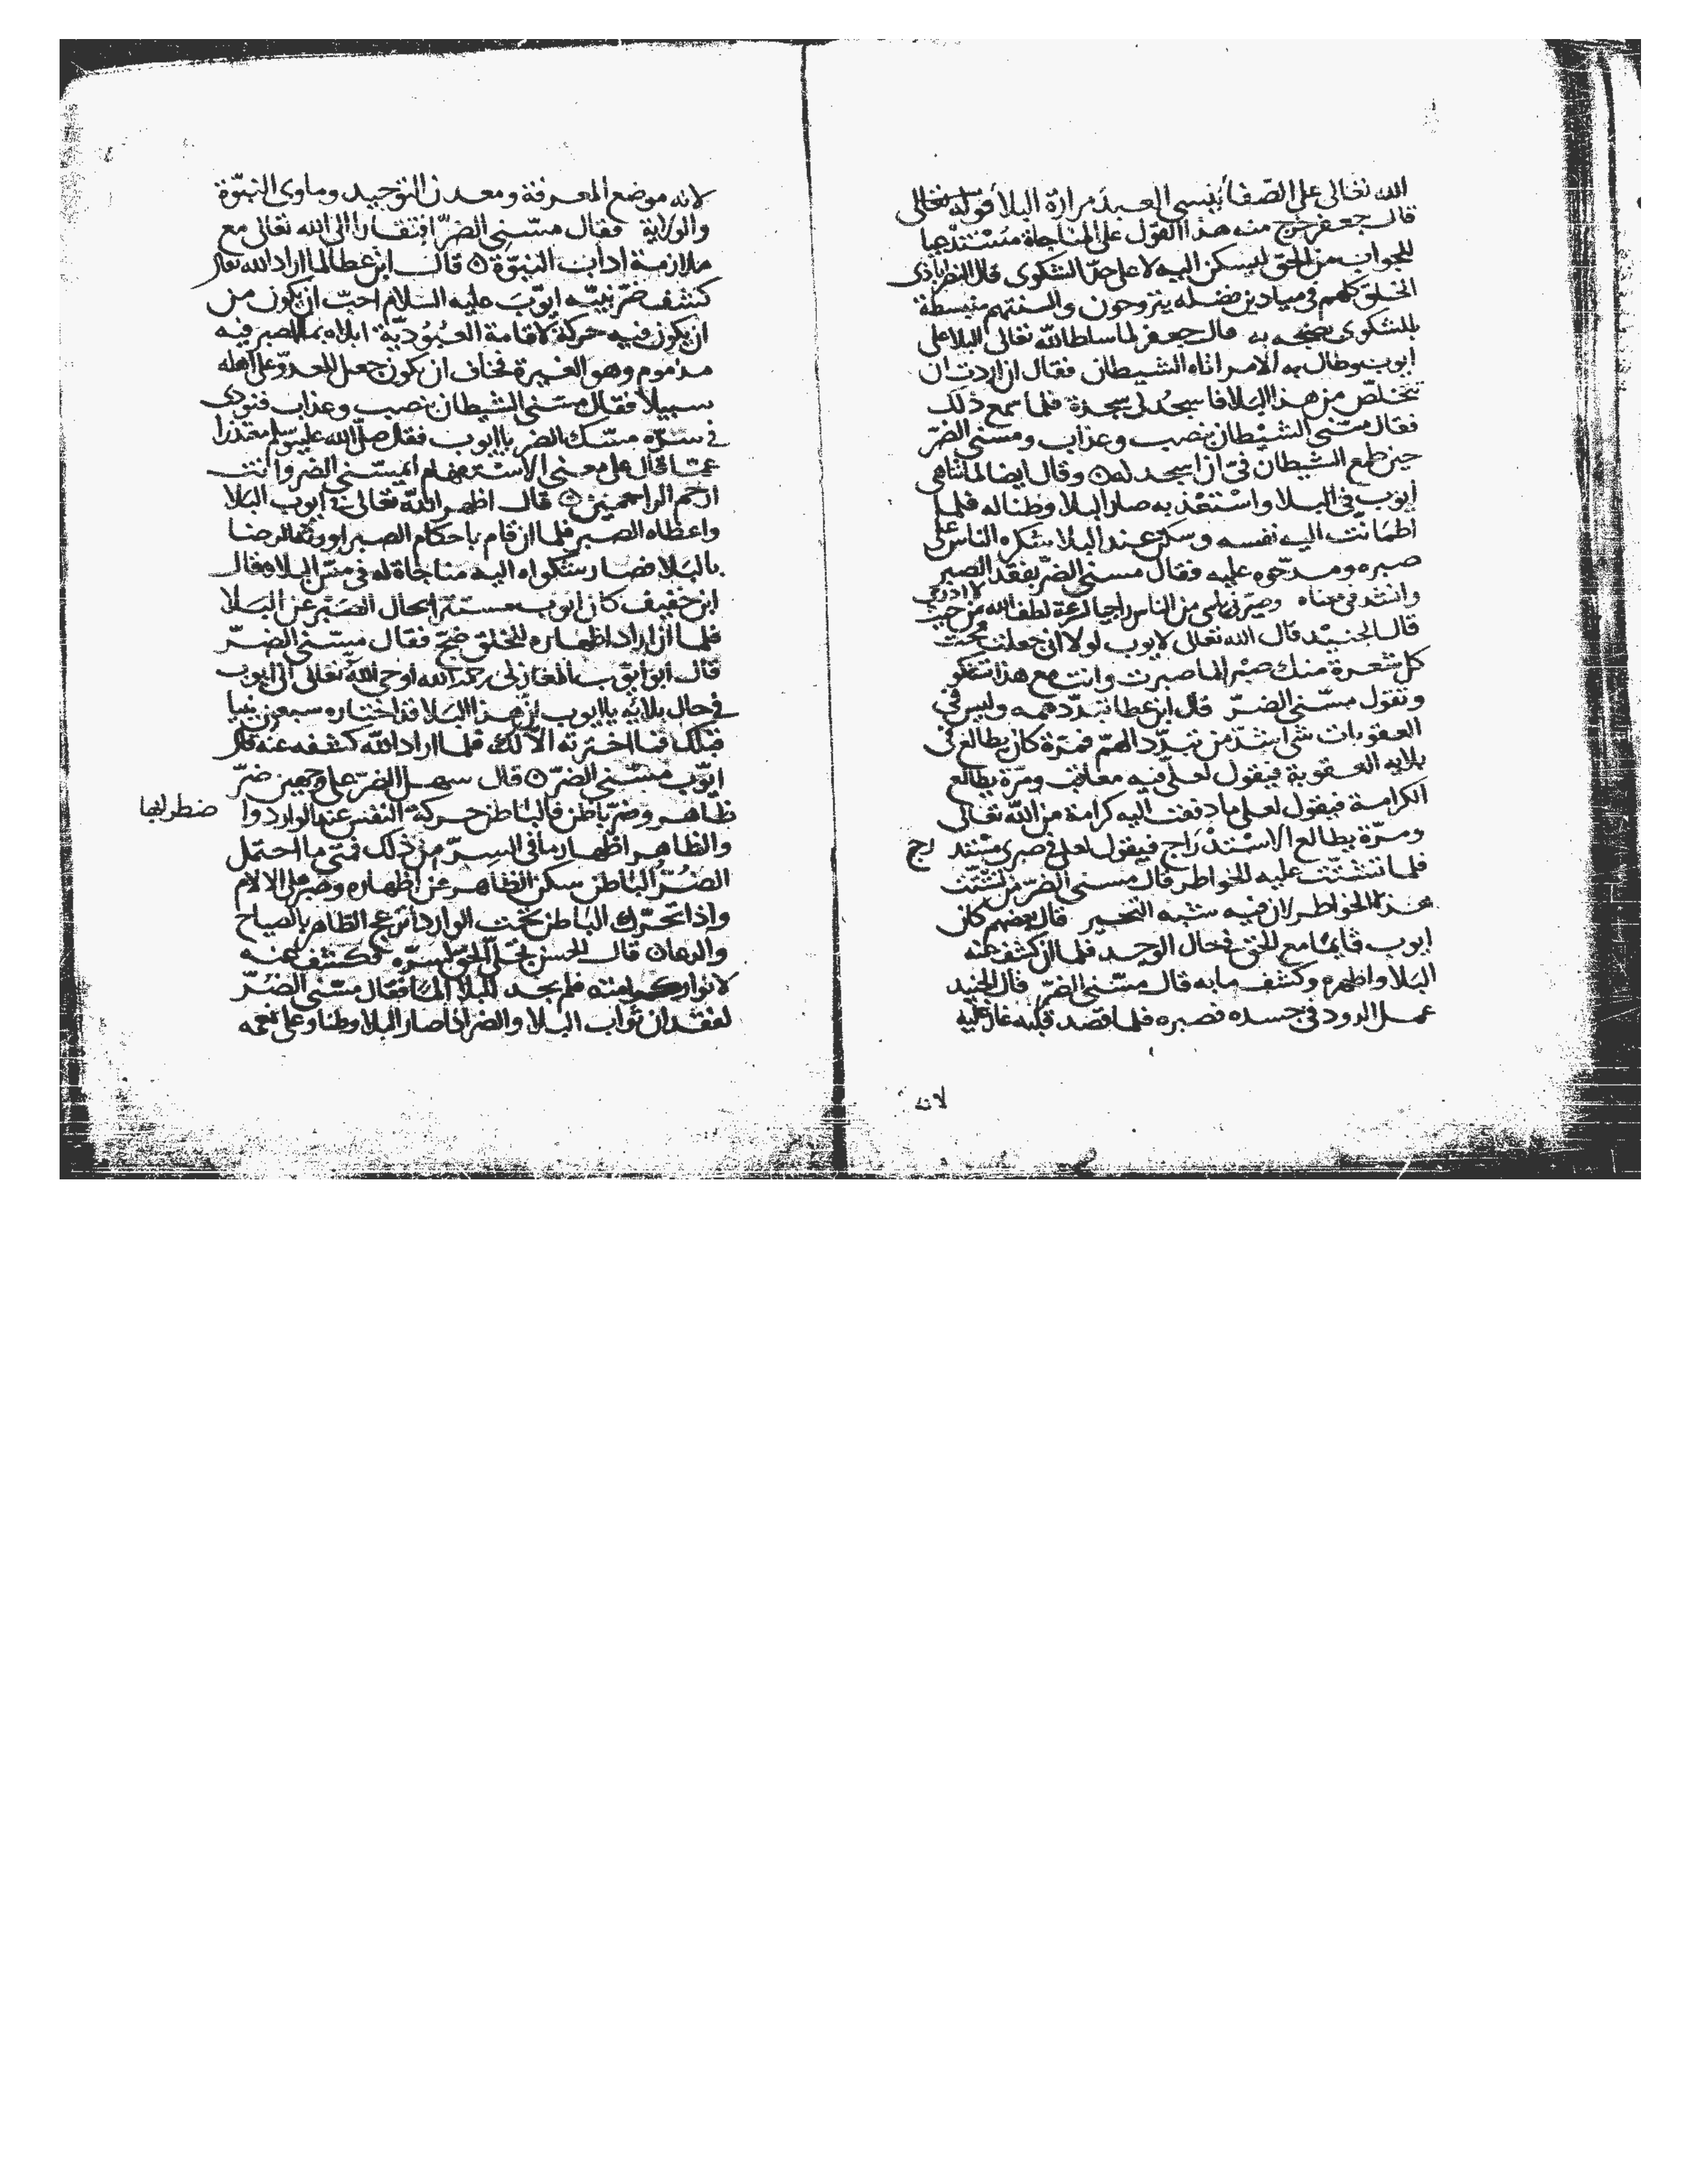 الله تعالى على الصفا ينسي العبد مرارة البلا قوله تعالى
قال جعفر خرج منه هذا القول على المناجاة مستدعيا
للجواب من الحق ليسكن اليه لا على حد الشكوى قال النصراباذى
الخلق كلهم في ميادين فضله يتروحون والسنتهم منبسطة
بالشكوى به قال جعفر لما سلط الله تعالى البلا على
ايوب وطال به الامر اتاه الشيطان فقال ان اردت ان
تتخلص من هذا البلا فاسجد لى سجدة فلما سمع ذلك
فقال مسني الشيطان بنصب وعذاب ومسني الضر
حين طمع الشيطان في ان اسجد له ۞ وقال ايضا لما تناهى
ايوب في البلا واستعذبه صار البلا وطنا له فلما
اطمانت اليه نفسه وسكن عند البلا شكره الناس على
صبره ومدحوه عليه فقال مسني الضر بفقد الصبر
وانشد في معناه وصيرني ياسي من الناس راجيا لسرعة لطف الله من حيث لا ادري
قال الجنيد قال الله تعالى لايوب لولا اني جعلت تحت
كل شعرة منك صبرا لما صبرت وانت مع هذا تشكو
وتقول مسني الضر قال ابن عطا تبدد همه وليس في
العقوبات شي اشد من تبدد الهم فمرة كان يطالع في
بلايه العقوبة فيقول لعلي فيه معاقب ومرة يطالع
الكرامة فيقول لعلي ما دفعت اليه كرامة من الله تعالى
ومرة يطالع الاستدراج فيقول لعلي في صبري مستد رج
فلما تشتت عليه الخواطر قال مسني الضر من تشتت
هذه الخواطر لان فيه شبه التحير قال بعضهم كان
ايوب قايما مع الحق في حال الوجد فلما ان كشف عنه
البلا واظهره وكشف ما به قال مسني الضر قال الجنيد
عمل الدود في جسده فصبره فلما قصد قلبه غار عليه
لانه
لانه موضع المعرفة ومعدن التوحيد وماوى النبوة
والولاية فقال مسني الضر افتقارا الى الله تعالى مع
ملازمة اداب النبوة ۞ قال ابن عطا لما اراد الله تعالى
كشف ضر نبيه ايوب عليه السلام احب ان يكون من
ان يكون فيه حركة لاقامة العبودية ابلاه بما الصبر فيه
مذموم وهو الغيرة فخاف ان يكون جعل للعدو على اهله
سبيلا فقال مسني الشيطان بنصب وعذاب فنودى
في سره مسك الضر يا ايوب فقال صلى الله عليه وسلم معتذرا
عما قال على معنى الاستفهام ايمسني الضر وانت
ارحم الراحمين ۞ قال اظهر الله تعالى في ايوب البلا
واعطاه الصبر فلما ان قام باحكام الصبر اورثه الرضا
بالبلا فصار شكواه اليه مناجاة له في مس البلا وقال
ابن خفيف كان ايوب مستترا بحال الصبر عن البلا
فلما ان اراد اظهاره للخلق ضج فقال مسني الضر
قال ابو يعقوب المغازلى رحمه الله اوحى الله تعالى الى ايوب
في حال بلايه يا ايوب ان هذا البلا قد اختاره سبعون نبيا
قبلك فما اخترته الا لك فلما اراد الله كشفه عنه قال
ايوب مسني الضر ۞ قال سهل الضر على وجهين ضر
ظاهر وضر باطن فالباطن حركة النفس عند الوارد وا ضطرابها
والظاهر اظهار ما في السر من ذلك فمتى ما احتمل
الضر الباطن سكن الظاهر عن اظهاره وصبر على الالام
واذا تحرك الباطن تحت الوارد انزعج الظاهر بالصياح
قال الحسن تجلى الحق لسره فكشف عنه
لانوار فلم يجد للبلا الما فقال مسني الضر
لفقدان ثواب البلا والضر اذا صار البلا وطنا وعلى نعمه